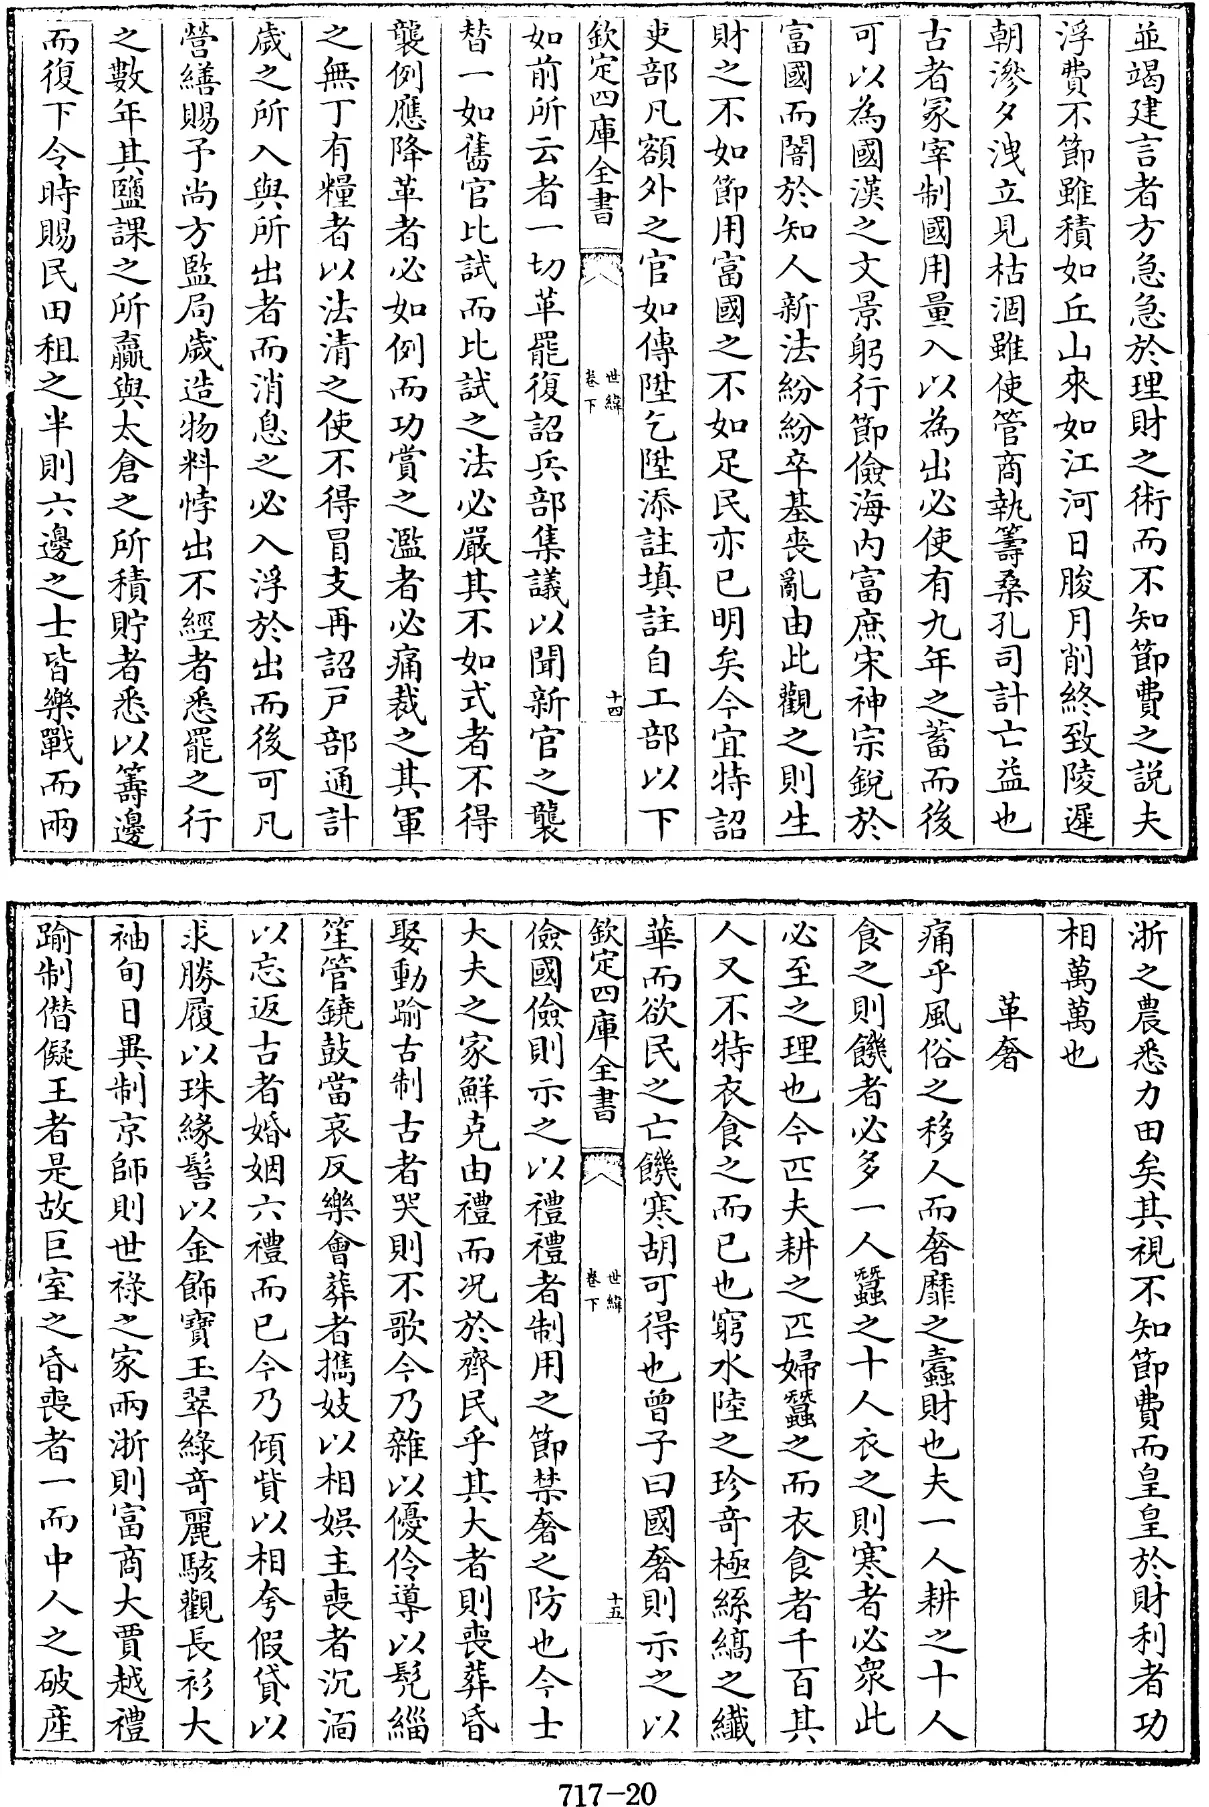 並竭建言者方急急於理財之術而不知節費之説夫
浮費不節雖積如丘山來如江河日朘月削終致陵遲
朝滲夕洩立見枯涸雖使管商執籌桑孔司計亡益也
古者冢宰制國用量入以為出必使有九年之蓄而後
可以為國漢之文景躬行節儉海内富庶宋神宗銳於
富國而闇於知人新法紛紛卒基喪亂由此觀之則生
財之不如節用富國之不如足民亦已明矣今宜特詔
吏部凡額外之官如傳陞乞陞添註填註自工部以下
欽定四庫全書
世緯
卷下
十四
如前所云者一切革罷復詔兵部集議以聞新官之襲
替一如舊官比試而比試之法必嚴其不如式者不得
襲例應降革者必如例而功賞之濫者必痛裁之其軍
之無丁有糧者以法清之使不得冒支再詔戸部通計
歲之所入與所出者而消息之必入浮於出而後可凡
營繕賜予尚方監局歲造物料悖出不經者悉罷之行
之數年其鹽課之所贏與太倉之所積貯者悉以籌邊
而復下令時賜民田租之半則六邊之士皆樂戰而兩
浙之農悉力田矣其視不知節費而皇皇於財利者功
相萬萬也
革奢
痛乎風俗之移人而奢靡之蠹財也夫一人耕之十人
食之則饑者必多一人蠶之十人衣之則寒者必衆此
必至之理也今匹夫耕之匹婦蠶之而衣食者千百其
人又不特衣食之而已也窮水陸之珍奇極絲縞之纎
華而欲民之亡饑寒胡可得也曾子曰國奢則示之以
欽定四庫全書
世緯
卷下
十五
儉國儉則示之以禮禮者制用之節禁奢之防也今士
大夫之家鮮克由禮而况於齊民乎其大者則喪葬昏
娶動踰古制古者哭則不歌今乃雜以優伶導以髠緇
笙管鐃鼓當哀反樂會葬者擕妓以相娛主喪者沉湎
以忘返古者婚姻六禮而已今乃傾貲以相夸假貸以
求勝履以珠緣髻以金飾寶玉翠綠奇麗駭觀長衫大
袖旬日異制京師則世祿之家兩浙則富商大賈越禮
踰制僭儗王者是故巨室之昏喪者一而中人之破産
717-20